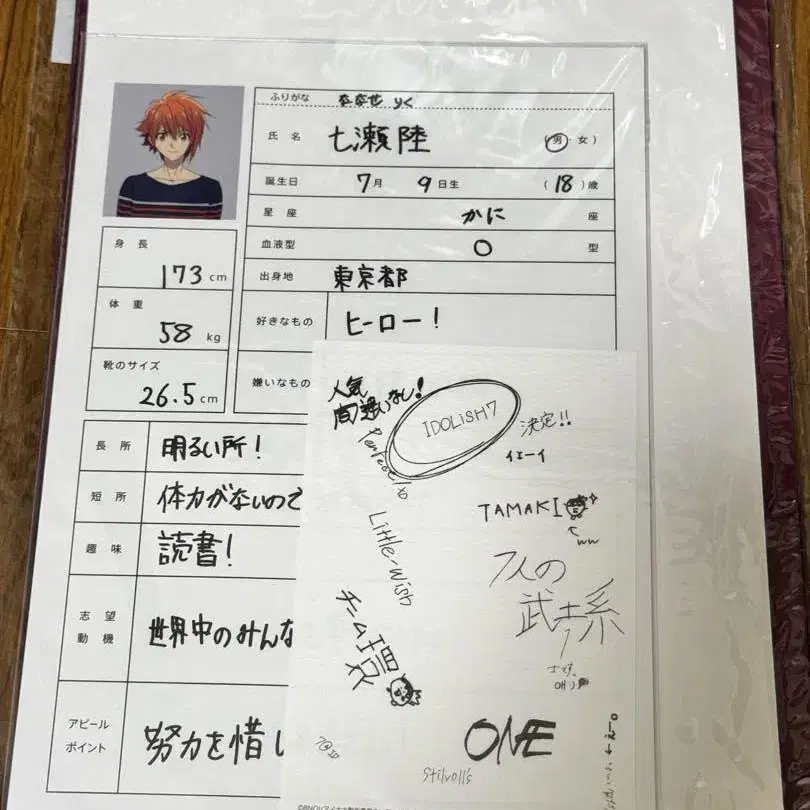 ふりがな ななせ りく
氏名 七瀬 陸 (男・女)
誕生日 7月 9日生 (18)歳
星座 かに 座
血液型 O 型
出身地 東京都
身長 173cm
体重 58 kg
靴のサイズ 26.5cm
好きなもの ヒーロー!
嫌いなもの
長所 明るい所!
短所 体力がないので
趣味 読書!
志望動機 世界中のみんな
アピールポイント 努力を惜し
人気
間違いなし!
IDOLiSH7
決定!!
イエーイ
TAMAKI
ww
Little-Wish
7人の
ONE